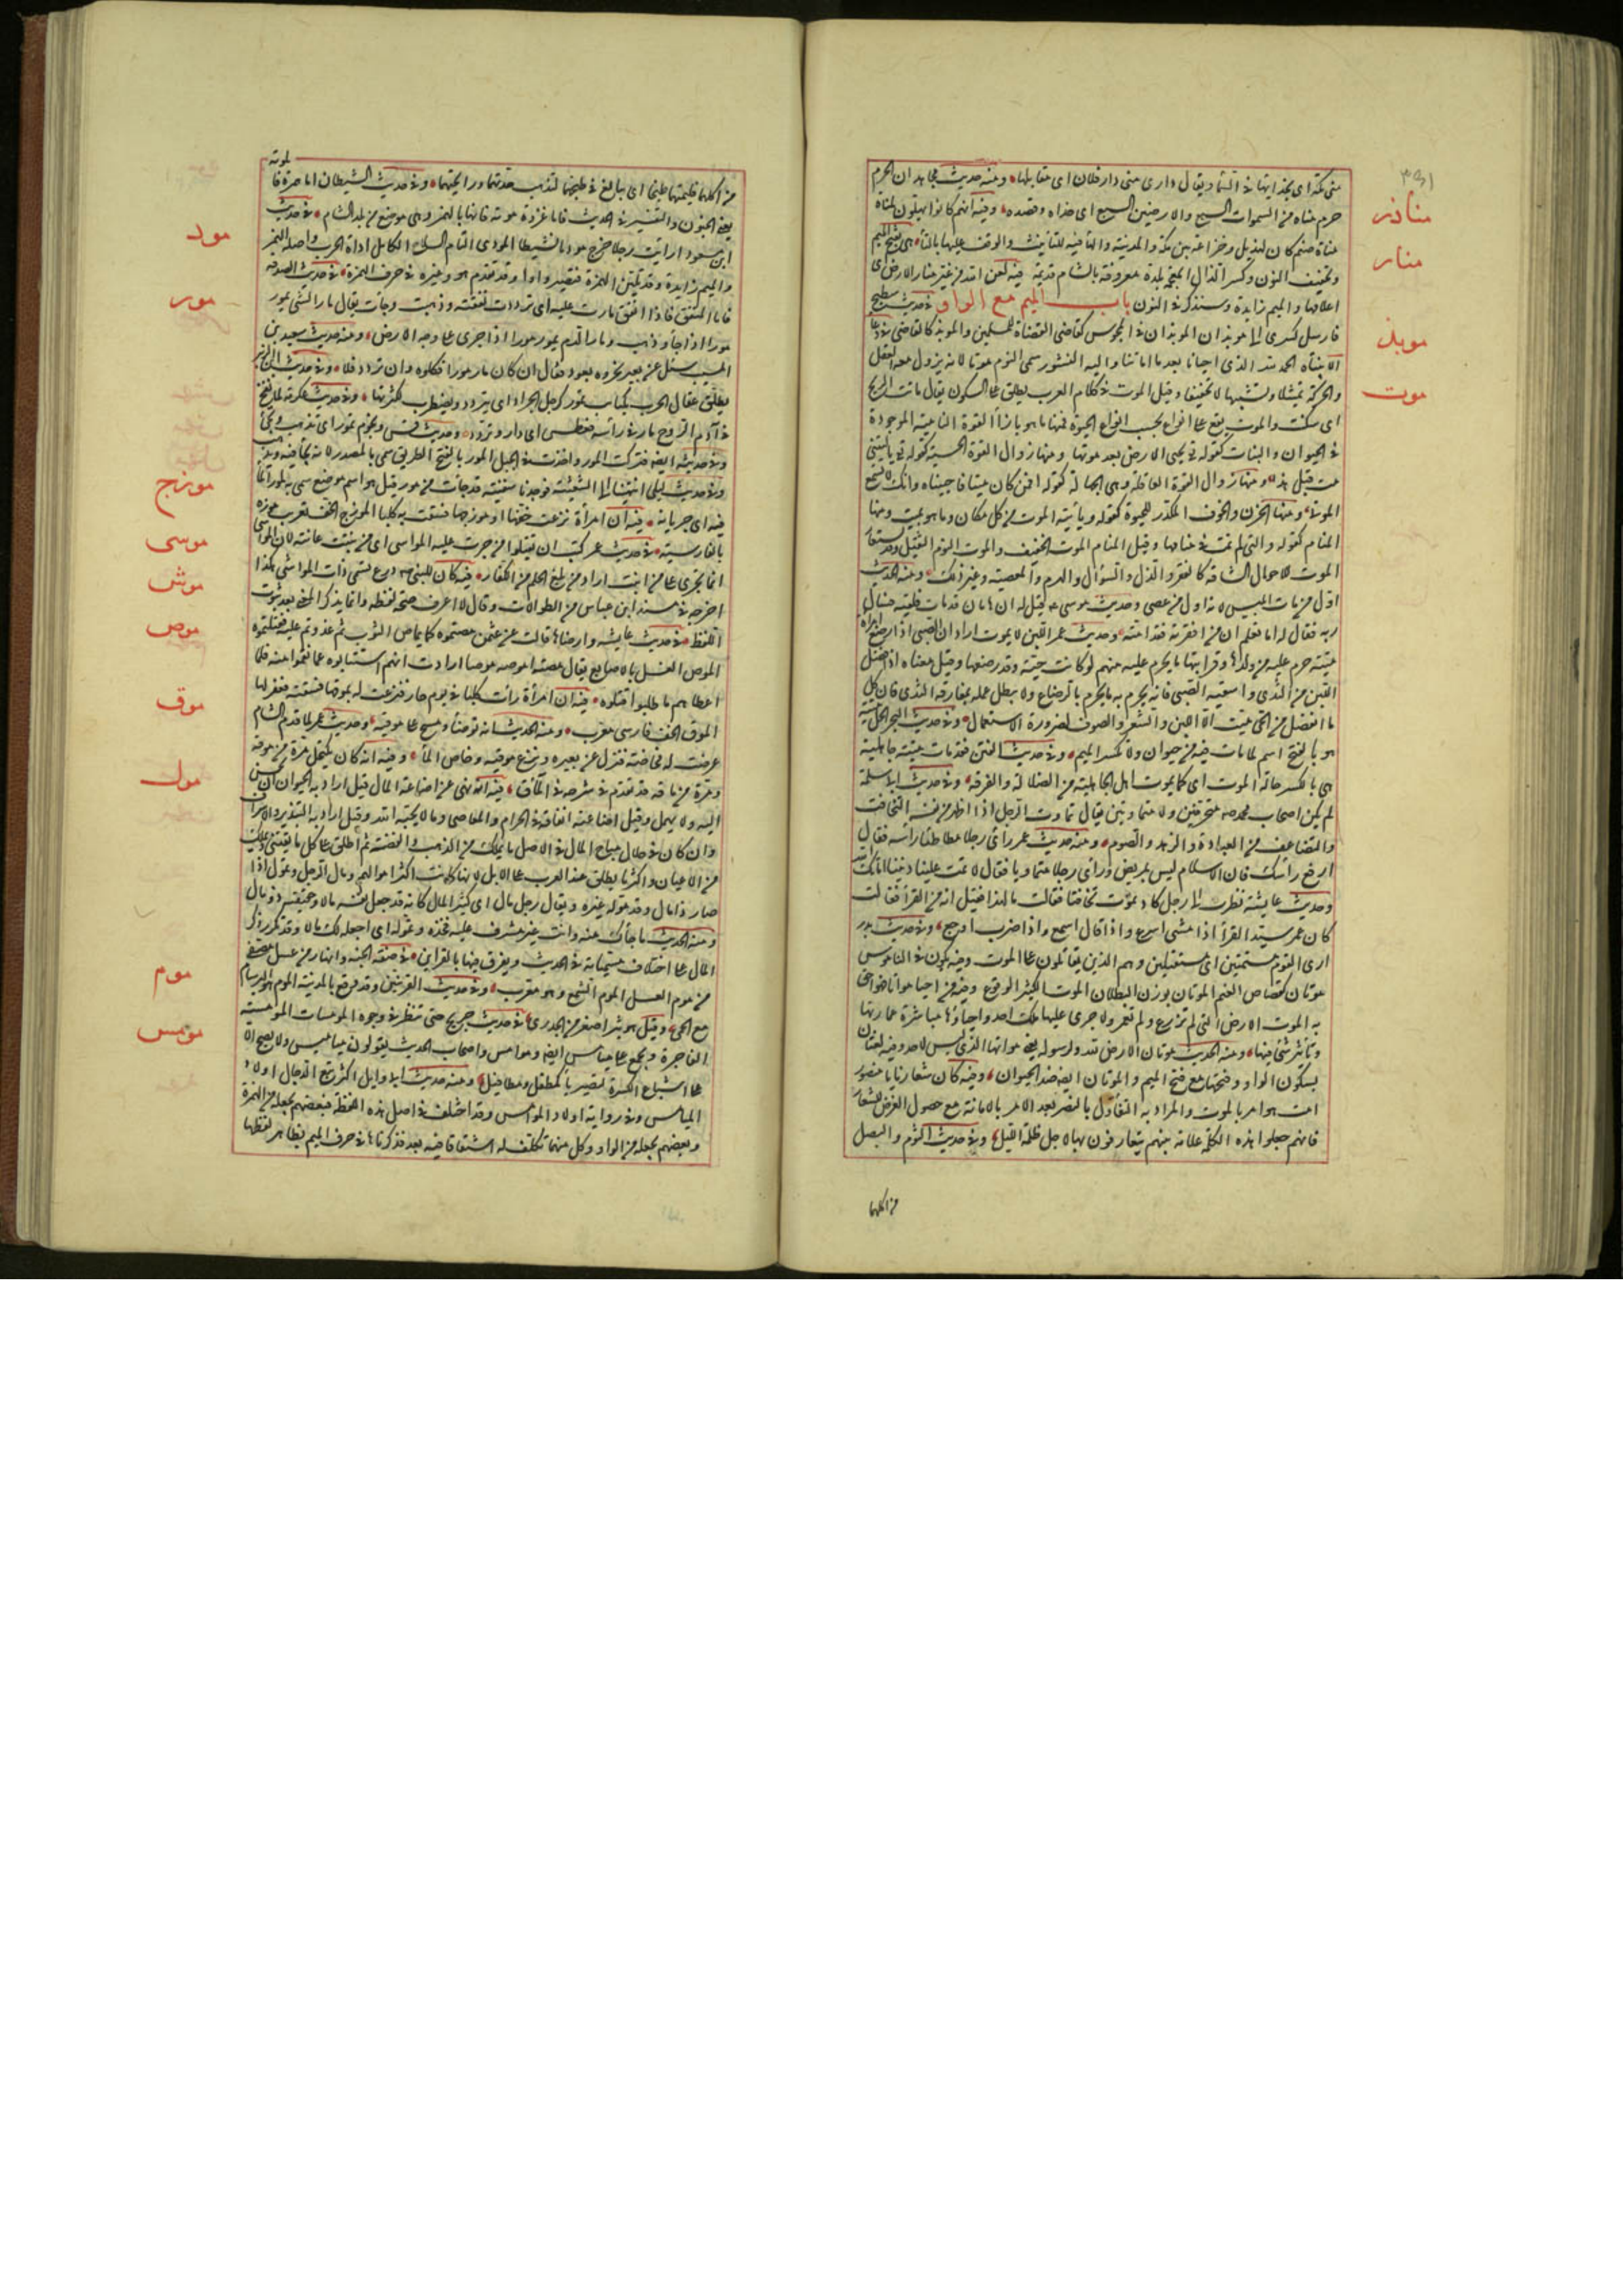 مناذر
منار
موبذ
موت
منى مكة اى بحذائها فى السماء ويقال دارى منى دار فلان اى مقابلها ومنه حديث مجاهد ان الحرم
حرم مناه من السموات السبع والارضين السبع اى حذاه وقصده وفيه انهم كانوا يهلون لمناة
مناة صنم كان لهذيل وخزاعة بين مكة والمدينة والهاء فيه للتأنيث والوقف عليها بالتاء هى بفتح الميم
وتخفيف النون وكسر الذال المعجمة بلدة معروفة بالشام قديمة فيه لعن الله من غير منار الارض اى
اعلامها والميم زايدة وسنذكر فى النون باب الميم مع الواو فى حديث سطيح
فارسل كسرى الى الموبذان الموبذان للمجوس كقاضى القضاة للمسلمين والموبذ كالقاضى فى دعاء
الانتباه الحمد لله الذى احيانا بعد ما اماتنا واليه النشور سمى النوم موتا لانه يزول معه العقل
والحركة تمثيلا وتشبيها لا تحقيقا وقيل الموت فى كلام العرب يطلق على السكون يقال ماتت الريح
اى سكنت والموت يقع على انواع بحسب انواع الحيوة فمنها ما هو بازاء القوة النامية الموجودة
فى الحيوان والنبات كقوله تع يحيى الارض بعد موتها ومنها زوال القوة الحسية كقوله تع يا ليتنى
مت قبل هذا ومنها زوال القوة العاقلة وهى الجهالة كقوله افمن كان ميتا فاحييناه وانك لا تسمع
الموتى ومنها الحزن والخوف المكدر للحيوة كقوله ويأتيه الموت من كل مكان وما هو بميت ومنها
المنام كقوله والتى لم تمت فى منامها وقيل المنام الموت الخفيف والموت النوم الثقيل وقد يستعار
الموت للاحوال الشاقة كالفقر والذل والسؤال والهرم والمعصية وغير ذلك ومنه الحديث
اول من مات ابليس لانه اول من عصى وحديث موسى عم قيل له ان هامان قد مات فلقيه فسال
ربه فقال له اما تعلم ان من افقرته فقد امته وحديث عمر اللبن لا يموت اراد ان الصبى اذا رضع امراة
ميتة حرم عليه من ولدها وقرابتها ما يحرم عليه منهم لو كانت حية وقد رضعها وقيل معناه اذا فصل
اللبن من الثدى واسقيه الصبى فانه يحرم به ما يحرم بالرضاع ولا يبطل عمله بمفارقة الثدى فان كل
ما انفصل من الحى ميت الا اللبن والشعر والصوف لضرورة الاستعمال وفى حديث البحر الحل ميتته
هو بالفتح اسم لما مات فيه من حيوان ولا تكسر الميم وفى حديث الفتن فقد مات ميتة جاهلية
هى بالكسر حالة الموت اى كما يموت اهل الجاهلية من الضلالة والفرقة وفى حديث ابى سلمة
لم يكن اصحاب محمد صم متحزقين ولا متماوتين يقال تماوت الرجل اذا اظهر من نفسه التخافت
والتضاعف من العبادة والزهد والصوم ومنه حديث عمر رأى رجلا مطاطئا راسه فقال
ارفع راسك فان الاسلام ليس بمريض ورأى رجلا متماوتا فقال لا تمت علينا ديننا اماتك الله
وحديث عايشة نظرت الى رجل كاد يموت تخافتا فقالت ما لهذا فقيل انه من القراء فقالت
كان عمر سيد القراء اذا مشى اسرع واذا قال اسمع واذا ضرب اوجع وفى حديث بدر
ارى القوم مستميتين اى مستقتلين وهم الذين يقاتلون على الموت وفيه يكون فى الناس
موتان كقعاص الغنم الموتان بوزن البطلان الموت الكثير الوقوع وفيه من احيا مواتا فهو احق
به الموات الارض التى لم تزرع ولم تعمر ولا جرى عليها ملك احد واحياؤها مباشرة عمارتها
وتأثير شئ فيها ومنه الحديث موتان الارض لله ولرسوله يعنى مواتها الذى ليس لاحد وفيه لغتان
بسكون الواو وفتحها مع فتح الميم والموتان ايضا ضد الحيوان وفيه كان شعارنا يا منصور
امت هو امر بالموت والمراد به التفاؤل بالنصر بعد الامر بالاماتة مع حصول الغرض للشعار
فانهم جعلوا هذه الكلمة علامة بينهم يتعارفون بها لاجل ظلمة الليل وفى حديث الثوم والبصل
من اكلهما
موته
مود
مور
موزج
موسى
موش
موص
موق
مول
موم
مومس
من اكلهما فليمتهما طبخا اى يبالغ فى طبخهما لتذهب حدتهما ورايحتهما وفى حديث الشيطان اما همزه فا
يعنى الجنون والتفسير فى الحديث فاما غزوة موته فانها بالهمز وهى موضع من بلد الشام فى حديث
ابن مسعود ارايت رجلا خرج موديا نشيطا المودى التام السلاح الكامل اداة الحرب واصله الهمز
والميم زايدة وقد تلين الهمزة فتصير واوا وقد تقدم هو وغيره فى حرف الهمزة فى حديث الصدقه
فاما المنفق فاذا انفق مارت عليه اى ترددت نفقته وذهبت وجاءت يقال مار الشئ يمور
مورا اذا جاء وذهب ومار الدم يمور مورا اذا جرى على وجه الارض ومنه حديث سعيد بن
المسيب سئل عن بعير نحروه بعود فقال ان كان مار مورا فكلوه وان ثرد فلا وفى حديث ابن الزبير
يطلق عقال الحرب بكتاب تمور كرجل الجراد اى يتردد ويضطرب لكثرتها وفى حديث عكرمة لما نفخ
فى آدم الروح مار فى راسه فعطس اى دار وتردد وحديث قس ونجوم تمور اى تذهب وتجئ
وفى حديثه ايضا فتركت المور واخذت فى الجبل المور بالفتح الطريق سمى بالمصدر لانه يجاء فيه ويذهب
وفى حديث ليلى انتهينا الى الشعيثة فوجدنا سفينة قد جاءت من مور قيل هو اسم موضع سمى به لمور الماء
فيه اى جريانه فيه ان امرأة نزعت خفها او موزجها فسقت به كلبا الموزج الخف تعريب موزه
بالفارسية فى حديث عمر كتب ان يقتلوا من جرت عليه المواسى اى من نبتت عانته لان المواسى
انما تجرى على من انبت اراد من بلغ الحلم من الكفار فيه كان للنبى صم درع تسمى ذات المواشى هكذا
اخرجه فى مسند ابن عباس من الطوالات وقال لا اعرف صحة لفظه وانما يذكر المعنى بعد ثبوت
اللفظ فى حديث عايشة وارضاها قالت عن عثمن مصتموه كما يماص الثوب ثم عدوتم عليه فقتلتموه
الموص الغسل بالاصابع يقال مصته اموصه موصا ارادت انهم استتابوه عما نقموا منه فلما
اعطاهم ما طلبوا قتلوه فيه ان امرأة رات كلبا فى يوم حار فنزعت له بموقها فسقته فغفر لها
الموق الخف فارسى معرب ومنه الحديث انه توضأ ومسح على موقيه وحديث عمر لما قدم الشام
عرضت له مخاضة فنزل عن بعيره ونزع موقيه وخاض الماء وفيه انه كان يكتحل مرة من موقه
ومرة من ماقه قد تقدم فى شرحه فى الماق فيه انه نهى عن اضاعة المال قيل اراد به الحيوان ان يحسن
اليه ولا يهمل وقيل اضاعته انفاقه فى الحرام والمعاصى وما لا يحبه الله وقيل اراد به التبذير والاسراف
وان كان فى حلال مباح المال فى الاصل ما يملك من الذهب والفضة ثم اطلق على كل ما يقتنى ويملك
من الاعيان واكثر ما يطلق عند العرب على الابل لانها كانت اكثر اموالهم ومال الرجل وتمول اذا
صار ذا مال وقد موله غيره ويقال رجل مال اى كثير المال كانه قد جعل نفسه مالا وحقيقته ذو مال
ومنه الحديث ما جاءك منه وانت غير مشرف عليه فخذه وتموله اى اجعله لك مالا وقد تكرر ذكر
المال على اختلاف مسمياته فى الحديث ويفرق فيها بالقراين فى صفة الجنة وانهار من عسل مصفى
من موم العسل الموم الشمع وهو معرب وفى حديث العرنيين وقد وقع بالمدينة الموم هو البرسام
مع الحمى وقيل هو بثر اصغر من الجدرى فى حديث جريج حتى تنظر فى وجوه المومسات المومسة
الفاجرة وتجمع على ميامس ايضا وموامس واصحاب الحديث يقولون مياميس ولا يصح الا
على اشباع الكسرة لتصير ياء كمطفل ومطافيل ومنه حديث ابى وايل اكثر تبع الدجال اولاد
الميامس وفى رواية اولاد الموامس وقد اختلف فى اصل هذه اللفظة فبعضهم يجعله من الهمزة
وبعضهم يجعله من الواو وكل منهما تكلف له اشتقاقا فيه بعد فذكرناها فى حرف الميم لظاهر لفظها